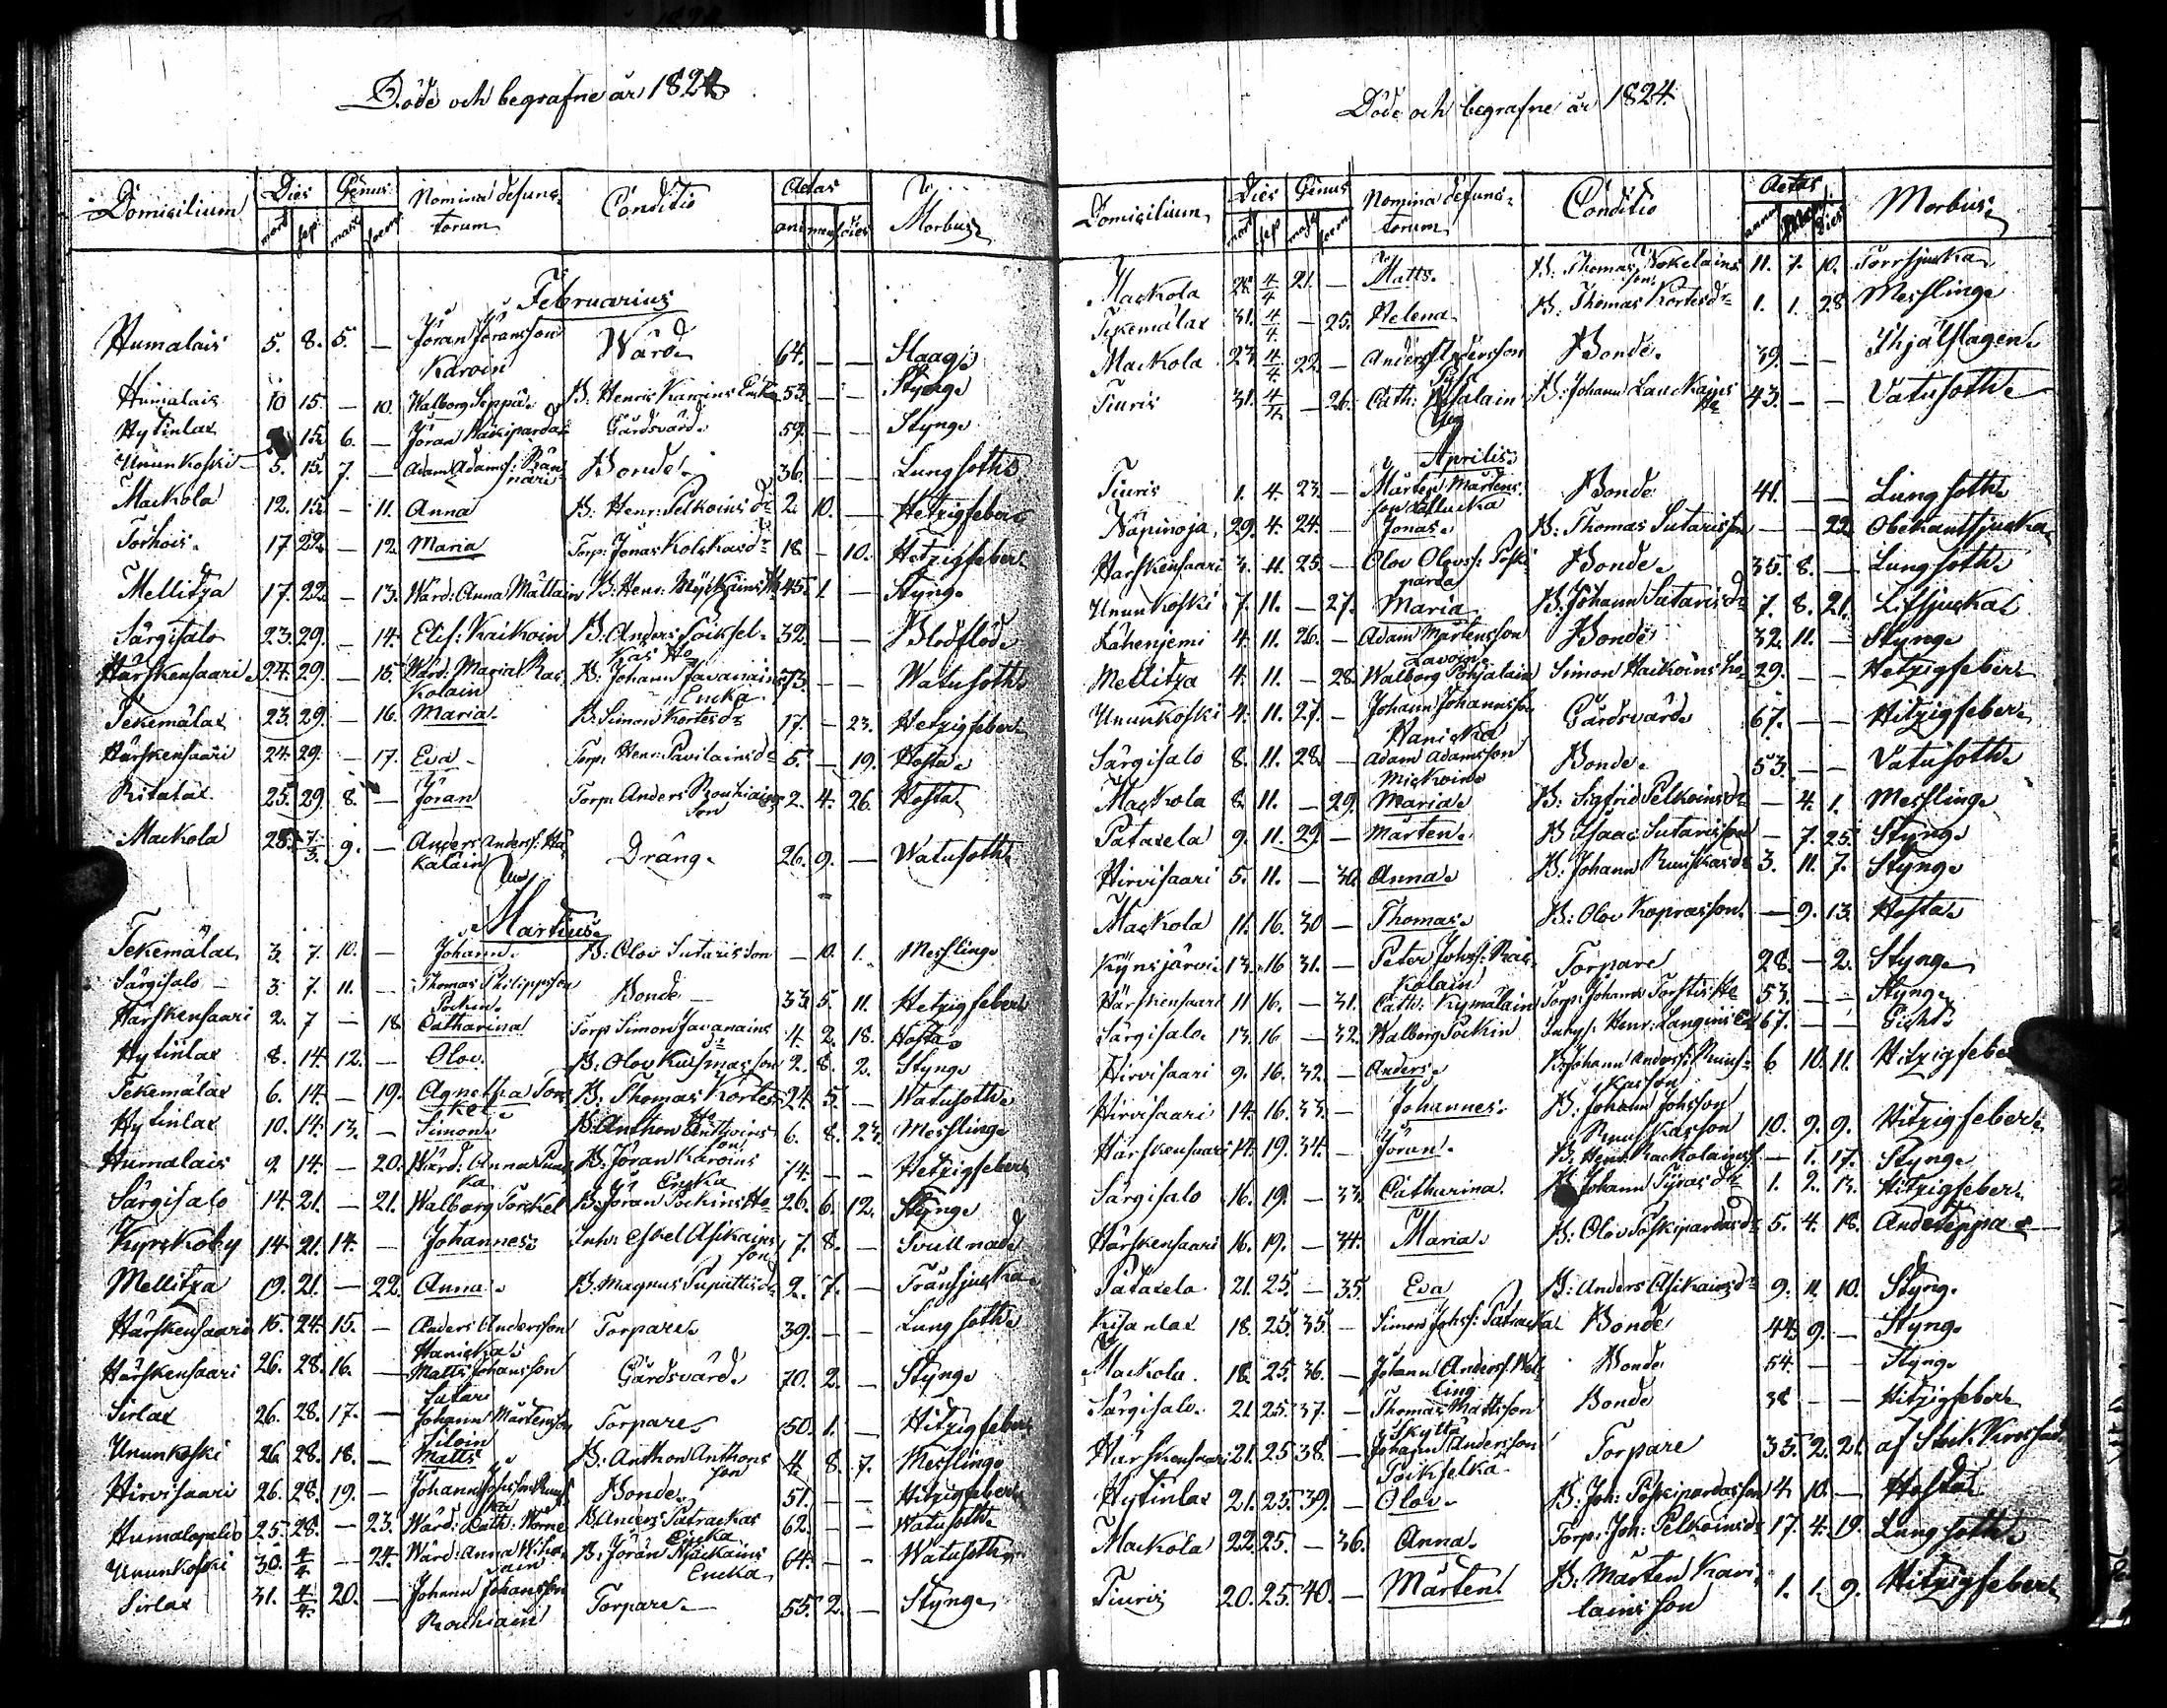 Döde och begrafne år 1824
Domicilium Dies Genus Nomina defunc- Conditio Aetas Morbus
mort sep. masc foem. torum ani mens dies
Februarius
Humalais 5. 8. 5. — Jöran Jöransson Wärd 64. — — Slaag
Karvin
Humalais 10 15. — 10. Walborg Seppä B: Henric Karvins Enka 53. — — Styng
Hytinlax 15. 6. — Jöran Gårdsvärd 59. — — Styng
Ununkoski 5. 15. 7. — Adam Adamss: Bonde 36. — — Lungsoth
Mackola 12. 15. — 11. Anna B: Henr: Pelkoins dr 2. 10. — Hetzigfeber
Torhois 17 22. — 12. Maria Torp: Jonas Kolskas dr 18 — 10. Hetzigfeber
Mellitza 17. 22. — 13. Wärd: Anna Mattain B: Henr: 45. 1 — Styng
Särgisalo 23. 29. — 14. Elis: Kaikoin B: Anders Toiksel- 32. — — Blodflöd
käs Ho
Härskensaari 24. 29. — 15. Wärd: Maria Ras- B: Johann Javanains 73. — — Watusoth
kolain Encka
Tekemälax 23. 29. — 16. Maria B. Simon Kortes dr 17. — 23. Hetzigfeber
Härskensaari 24. 29. — 17. Eva Torp: Henr: Pavilains dr 5. — 19. Hosta
Ritalax 25. 29 8. — Jöran Torp: Anders Rouhiains 2. 4. 26. Hosta
son
Mackola 28. 7/3. 9. — Anders Anderss: Ha- Dräng 26. 9. — Watusoth
kalain
Martius
Tekemälax 3. 7. 10. — Johann B: Olov Sutarisson — 10. 1. Messling
Särgisalo 3. 7. 11. — Thomas Philippsson Bonde 33 5. 11. Hetzigfeber
Pockin
Härskensaari 2. 7 — 18 Catharina Torp Simon Javanains 4. 2. 18. Hosta
dr
Hytinlax 8. 14. 12. — Olov B: Olov Kuismasson 2. 8. 2. Styng
Tekemälax 6. 14. — 19. Agnetha Tors- B: Thomas Kortes 24. 5. — Watusoth
kel Ho
Hytinlax 10. 14. 13. — Simon B: Anthon Anttoins 6. 8. 23. Messling
son
Humalais 9. 14. — 20. Wärd: Anna Puuk- B: Jöran Karvins 74. — — Hetzigfeber
ka Encka
Särgisalo 14. 21. — 21. Walborg Torckel B: Jöran Pockins Ho 26. 6. 12. Styng
Kyrckoby 14. 21. 14. — Johannes Inh: Eskel Asikains 7. 8. — Svullnad
son
Mellitza 19. 21. — 22. Anna B: Magnus Puputtis dr 2. 7. — Transjucka
Härskensaari 15. 24. 15. — Anders Andersson Torpare 39. — — Lungsoth
Hanicka
Härskensaari 26. 28. 16. — Matts Johansson Gårdsvärd 70. 2. — Styng
Sutari
Sirlax 26. 28. 17. — Johann Mårtensson Torpare 50. 1. — Hitzigfeber
Siloin
Ununkoski 26. 28. 18. — Matts B: Anthon Anthons 4. 8. 7. Messling
son
Hirvisaari 26. 28. 19. — Johann Johsson Ruus- Bonde 51. — — Hitzigfeber
ka
Humalopelto 25. 28. — 23. Wärd: Cath: Worne B. Anders Patrackas 62. — — Watusoth
Encka
Ununkoski 30. 4/4 — 24. Wärd: Anna B: Jöran Mäckains 64. — — Watusoth
Encka
Sirlax 31. 4/4. 20. — Johann Johansson Torpare 55. 2. — Styng
Rouhiain
Döde och begrafne år 1824
Domicilium Dies Genus Nomina defunc- Conditio Aetas Morbus
mort sep masc foem torum anni Mens Dies
Mackola 28. 4/4 21. — Matts B: Thomas Kokelains 11. 7. 10. Torrsjucka
son
Tekemälax 31. 4/4. — 25. Helena B: Thomas Kortes dr 1. 1. 28 Messling
Mackola 23. 4/4. 22. — Anders Andersson Bonde 39. — — Ihjälslagen
Tiuris 31. 4/4. — 26. Cath: B: Johann Lauckains 43. — — Vatusoth
Ho
Aprilis
Tiuris 1. 4. 23. — Mårten Mårtens- Bonde 41. — — Lungsoth
son Lallucka
Näpinoja 29. 4. 24. — Jonas B: Thomas Sutarisson — — 22. Obekantsjucka
Härskensaari 3. 11. 25. — Olov Olovss: Poski- Bonde 35. 8. — Lungsoth
parda
Ununkoski 7. 11. — 27. Maria B. Johann Sutaris dr 7. 8. 21. Lifsjucka
Kähenjemi 4. 11. 26. — Adam Mårtensson Bonde 32. 11. — Styng
Mellitza 4. 11. — 28. Walborg Pohjalain Simon Haikoins Ho 29. — — Hetzigfeber
Ununkoski 4. 11. 27. — Johann Johannsson Gårdsvärd 67. — — Hitzigfeber
Hanicka
Särgisalo 8. 11. 28. — Adam Adamsson Bonde 53. — — Vatusoth
Mickoin
Mackola 8. 11. — 29. Maria B: Sigfrid Pelkoins dr — 4. 1. Messling
Pataxela 9. 11. 29. — Mårten B Isaac Sutarisson — 7. 25. Styng
Hirvisaari 5. 11. — 30. Anna B: Johann Ruuskas dr 3. 11. 7. Styng
Mackola 11. 16. 30 — Thomas B: Olov Koprasson — 9. 13. Hosta
Kynsjärvi 13. 16 31. — Peter Johss: Ras- Torpare 28. — 2. Styng
kolain
Härskensaari 11 16. — 31. Cath: Kymälain Torp: Johann Torstis Ho 53. — — Styng
Särgisalo 13. 16 — 32. Walborg Pockin Inhys: Henr: Langins Ea 67. — — Gickt
Hirvisaari 9. 16. 32. — Anders B: Johann Anderss: Ruus- 6 10. 11. Hitzigfeber
kasson
Hirvisaari 14. 16. 33. — Johannes B: Johann Johsson 10. 9. 9. Hitzigfeber
Ruuskasson
Härskensaari 14. 19. 34. — Jöran B: Henr: Rackolainss — 1. 17. Styng
Särgisalo 16. 19. — 33. Catharina B Johann Tyras dr 1. 2. 13. Hitzigfeber
Härskensaari 16. 19. — 34. Maria B: Olov Poskipardas dr 5. 4. 18. Andetäppa
Pataxela 21. 25. — 35. Eva B: Anders Asikains dr 9. 11. 10. Styng
Kisanlax 18. 25. 35. — Simon Johss: Patracka Bonde 44. 9. — Styng
Mackola 18. 25. 36. — Johann Anderss. Wat- Bonde 54. — — Styng
ling
Särgisalo 21. 25. 37. — Thomas Mattsson Bonde 38 — — Hitzigfeber
Skyttä
Härskensaari 21. 25 38. — Johann Andersson Torpare 33. 2. 21. af
Toikselka
Hytinlax 21. 25. 39. — Olov B: Joh: Poskipardasson 4. 10. — Hosta
Mackola 22. 25. — 36. Anna Torp: Joh: Pelkoins dr 17. 4. 19. Lungsoth
Tiuris 20. 25. 40. — Mårten B: Mårten Kavi- 1. 1. 9. Hitzigfeber
lains son